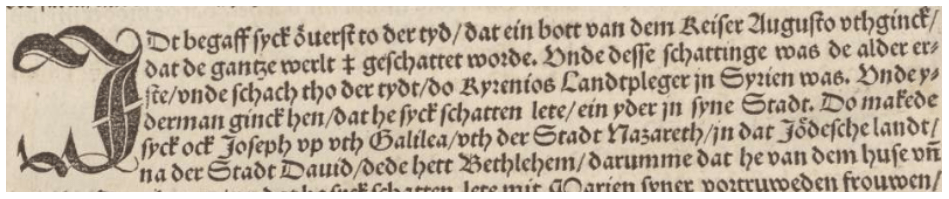 IDt begaff syck öuerst to der tyd/ dat ein bott van dem Keiser Augusto vthginck/
dat de gantze werlt ‡ geschattet worde. Vnde desse schattinge was de alder er⸗
ste/vnde schach tho der tydt/do Kyrenios Landtpleger jn Syrien was. Vnde y⸗
derman ginck hen/dat he syck schatten lete/ ein yder jn syne Stadt. Do makede
syck ock Joseph vp vth Galilea/vth der Stadt Nazareth/jn dat Jödesche landt/
na der Stadt Dauid/dede hett Bethlehem/ darumme dat he van dem huse vñ
he syck schatten lete mit Marien syner vortruweden frouwen/